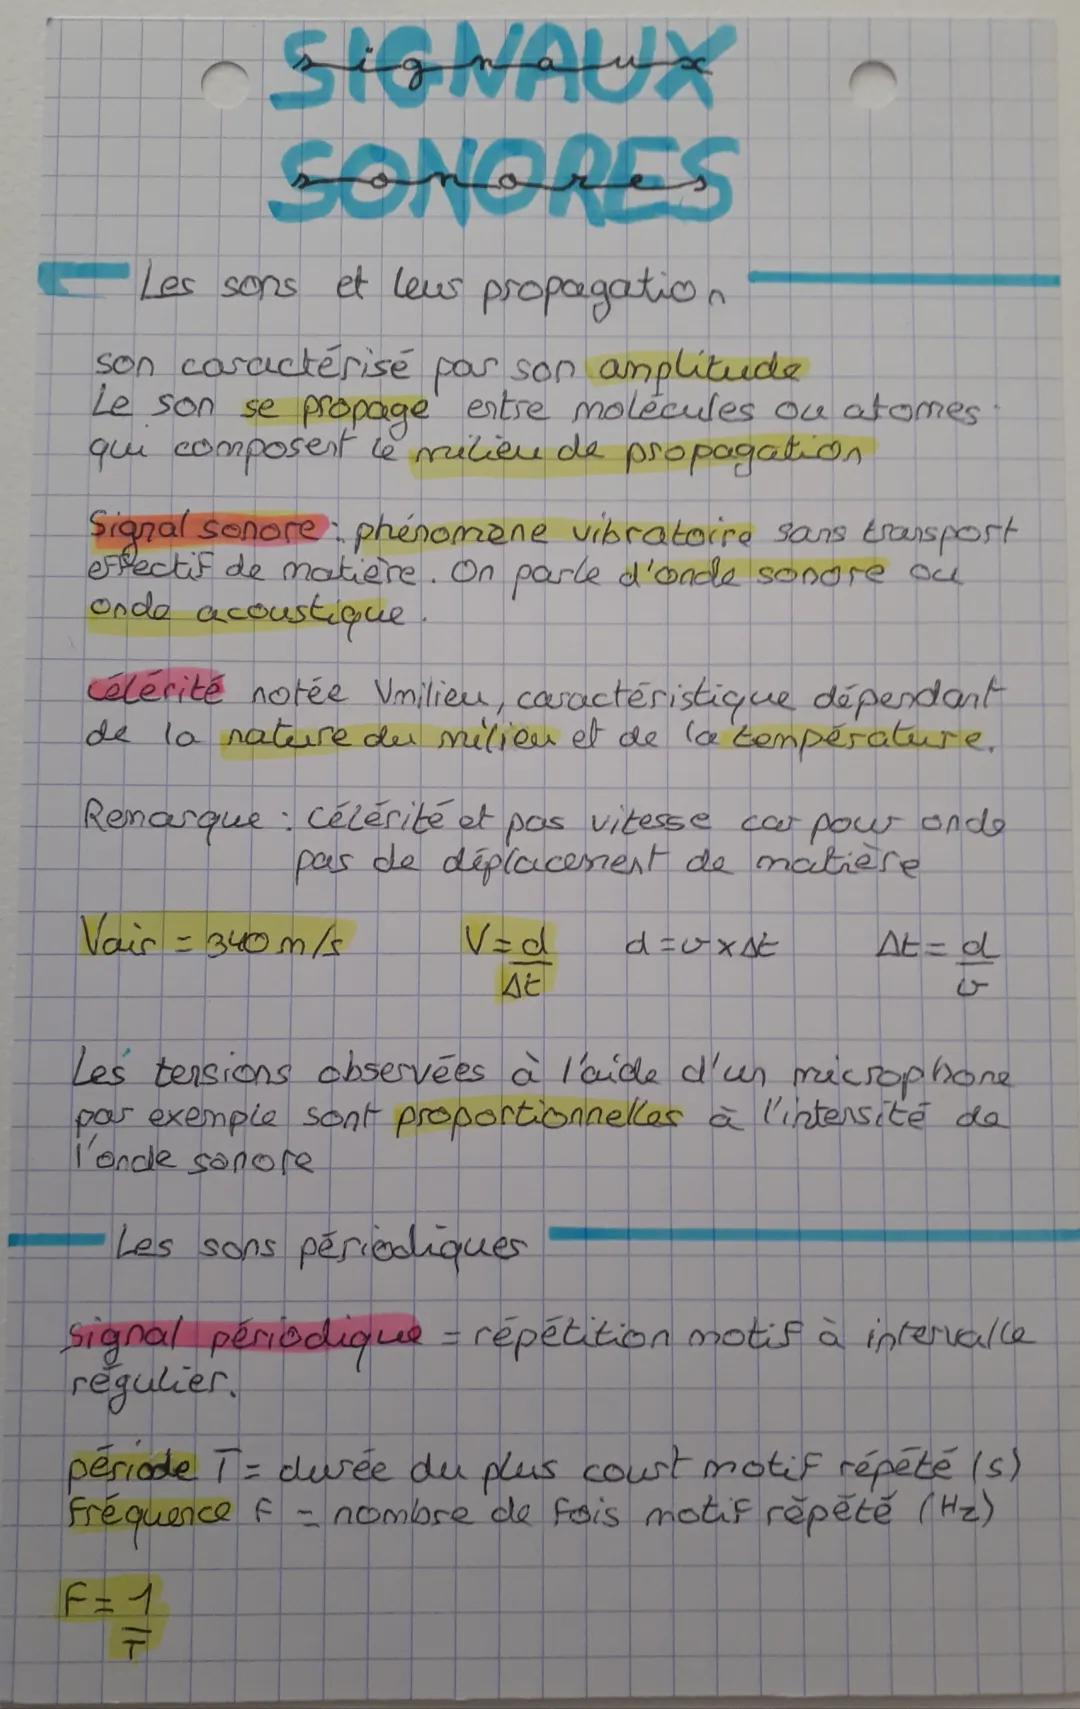 SIGNAUX
signaux
SONORES
sonores
Les sons et leurs propagation
son caractérisé par son amplitude
Le son se propage entre molécules ou atomes
qui composent le milieu de propagation
Signal sonore : phénomène vibratoire sans transport
effectif de matière. On parle d'onde sonore ou
onde acoustique.
Célérité notée Vmilieu, caractéristique dépendant
de la nature du milieu et de la température.
Remarque : célérité et pas vitesse car pour onde
pas de déplacement de matière
Vair = 340 m/s V = d/Δt d = v × Δt Δt = d/v
Les tensions observées à l'aide d'un microphone
par exemple sont proportionnelles à l'intensité de
l'onde sonore
Les sons périodiques
Signal périodique = répétition motif à intervalle
régulier.
période T = durée du plus court motif répété (s)
Fréquence F = nombre de fois motif répété (Hz)
F = 1/T